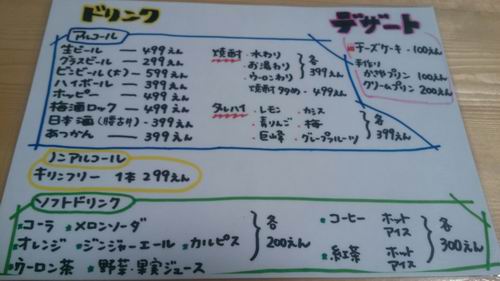 ドリンク
アルコール
生ビール — 499えん
グラスビール — 299えん
ビンビール(大) — 599えん
ハイボール — 399えん
ホッピー — 499えん
梅酒ロック — 499えん
日本酒 - 399えん
あつかん — 399えん
焼酎・水わり
お湯わり
ウーロンわり
各399えん
焼酎ダブめ・499えん
タルハイ・レモン・カシス
・青りんご・梅
・巨山峰・グレープフルーツ
各399えん
デザート
チーズケーキ・100えん
手作り
かぼちゃプリン 100えん
クリームプリン 200えん
ノンアルコール
キリンフリー 1本299えん
ソフトドリンク
コーラ メロンソーダ
オレンジ ジンジャーエール カルピス
ウーロン茶 野菜・果実ジュース
各200えん
コーヒー ホット アイス
紅茶 ホット アイス
各300えん